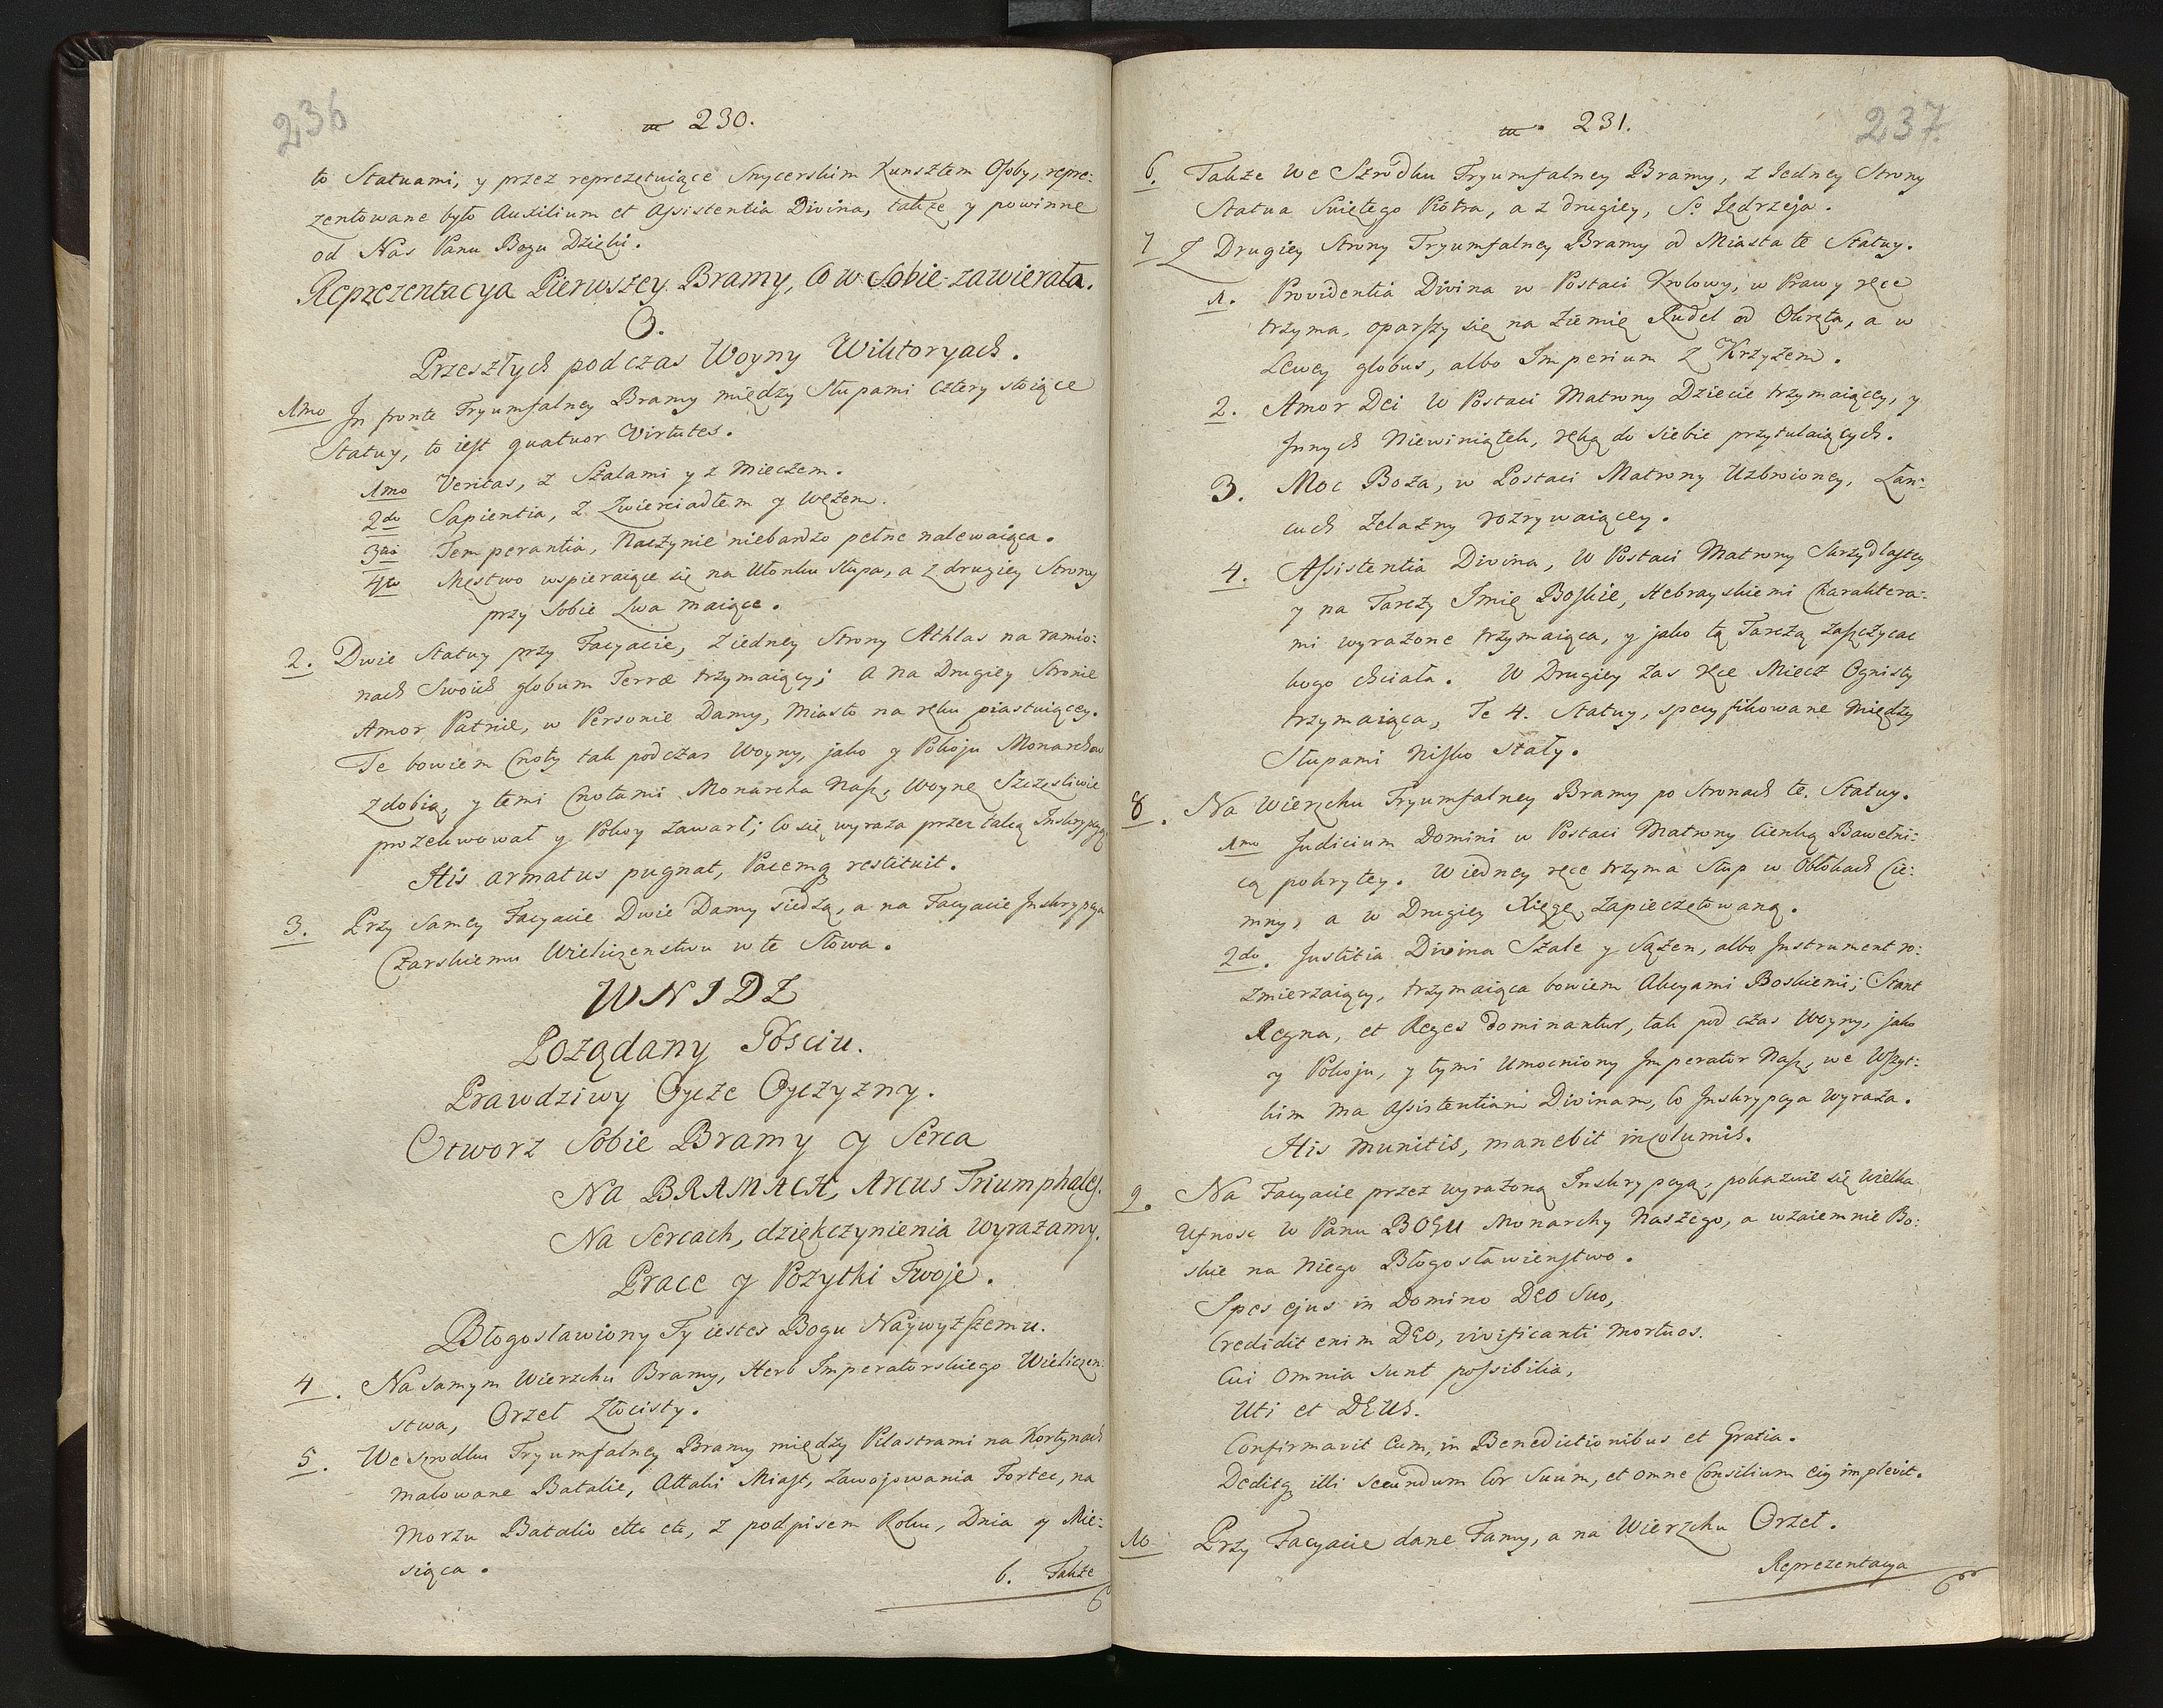 236
230.
to Statuami, y przez reprezętuiące Snycerskim Kunsztem Osoby, repre:
zentowane było Auxilium et Assistentia Divina, także y powinne
od Nas Panu Bogu Dzięki.
Reprezentacya Pierwszey Bramy, Co w Sobie zawierała.
O.
Przeszłych podczas Woyny Wiktoryach.
1mo In fronte Tryumfalney Bramy między Słupami cztery stoiące
Statuy, to iest quatuor Virtutes.
1mo Veritas, z Szalami y z Mieczem.
2do Sapientia, z Zwierciadłem y Wężem.
3tio Temperantia, Naczynie niebardzo pełne nalewaiąca.
4to Męstwo wspieraiące się na Ułonku słupa, a z drugiey Strony
przy Sobie Lwa maiące.
2. Dwie Statuy przy Facyacie, z iedney Strony Athlas na ramio:
nach Swoich globum Terræ trzymaiący; a na Drugiey Stronie
Amor Patriæ, w Personie Damy, Miasto na ręku piastuiącey.
Te bowiem Cnoty tak podczas Woyny, jako y Pokoju Monarchow
zdobią, y temi Cnotami Monarcha Nasz, Woynę Szczęsliwie
prozekwował y Pokoy zawarł; co się wyraża przez taką Inskrypcyą
His armatus pugnat, Pacemq restituit.
3. Przy samey Facyacie Dwie Damy siedzą, a na Facyacie Inskrypcya
Czarskiemu Wieliczenstwu w te Słowa.
WNIDZ
Pożądany Gościu.
Prawdziwy Oycze Oyczyzny.
Otworz Sobie Bramy y Serca
Na BRAMACH, Arcus Triumphales.
Na Sercach, dziękczynienia wyrażamy.
Prace y Pożytki Twoje.
Błogosławiony Ty iestes Bogu Naywyższemu.
4. Na samym Wierzchu Bramy, Herb Imperatorskiego Wieliczen:
stwa, Orzeł Złocisty.
5. We szrodku Tryumfalney Bramy między Pilastrami na Kortynach
malowane Batalie, Attaki Miast, zawojowania Fortec, na
Morzu Batalie etc etc, z podpisem Roku, Dnia y Mie:
siąca.
6. Także
237.
231.
6. Także We Szrodku Tryumfalney Bramy, z Jedney Strony
Statua Swiętego Piotra, a z drugiey, So Jędrzeja.
7 Z Drugiey Strony Tryumfalney Bramy od Miasta te Statuy.
1. Providentia Divina w Postaci Krolowy, w Prawy ręce
trzyma, oparszy się na Ziemię Rudel od Okręta, a w
Lewey globus, albo Imperium z Krzyżem.
2. Amor Dei w Postaci Matrony Dziecie trzymaiącey, y
Innych Niewiniątek, ręką do siebie przytulaiących.
3. Moc Boża, w Postaci Matrony Uzbroioney, Łan:
cuch żelazny rozrywaiącey.
4. Assistentia Divina, w Postaci Matrony Skrzydlastey
y na Tarczy Imię Boskie, Hebrayskiemi Charaktera:
mi wyrażone trzymaiąca, y jako tą Tarczą zaszczycac
kogo chciała. W Drugiey zas ręce Miecz Ognisty
trzymaiąca, Te 4. Statuy, specyfikowane między
Słupami Nisko stały.
8. Na Wierzchu Tryumfalney Bramy po stronach te Statuy.
1mo Judicium Domini w Postaci Matrony Cienką Bawełni:
cą pokrytey. W iedney ręce trzyma Słup w Obłokach Cie:
mny, a w Drugiey Xięgę zapieczętowaną.
2do. Justitia Divina Szale y Sążen, albo Instrument ro:
zmierzaiący, trzymaiąca bowiem Akcyami Boskiemi; Stant
Regna, et Reges dominantur, tak pod czas Woyny, jako
y Pokoju, y tymi Umocniony Imperator Nasz, we Wszyt:
kim ma Assistentiam Divinam, co Inskrypcya wyraża.
His munitis, manebit incolumis.
9. Na Facyacie przez wyrażoną Inskrypcyą, pokazuie się wielka
Ufnosc w Panu BOGU Monarchy Naszego, a wzaiemnie Bo:
skie na Niego Błogosławienstwo.
Spes ejus in Domino DEO Suo,
Credidit enim DEO, vivificanti mortuos.
Cui omnia sunt possibilia,
Uti et DEUS.
Confirmavit Eum, in Benedictionibus et Gratia.
Deditq illi secundum Cor Suum, et omne Consilium eig implevit.
10 Przy Facyacie dane Famy, a na Wierzchu Orzeł.
Reprezentacya